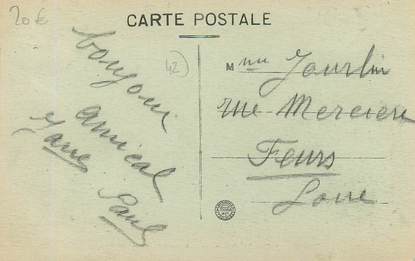 20 €
CARTE POSTALE
bonjour
amical
Jane Paul
42
Mme Jourlin
rue Mercière
Feurs
Loire